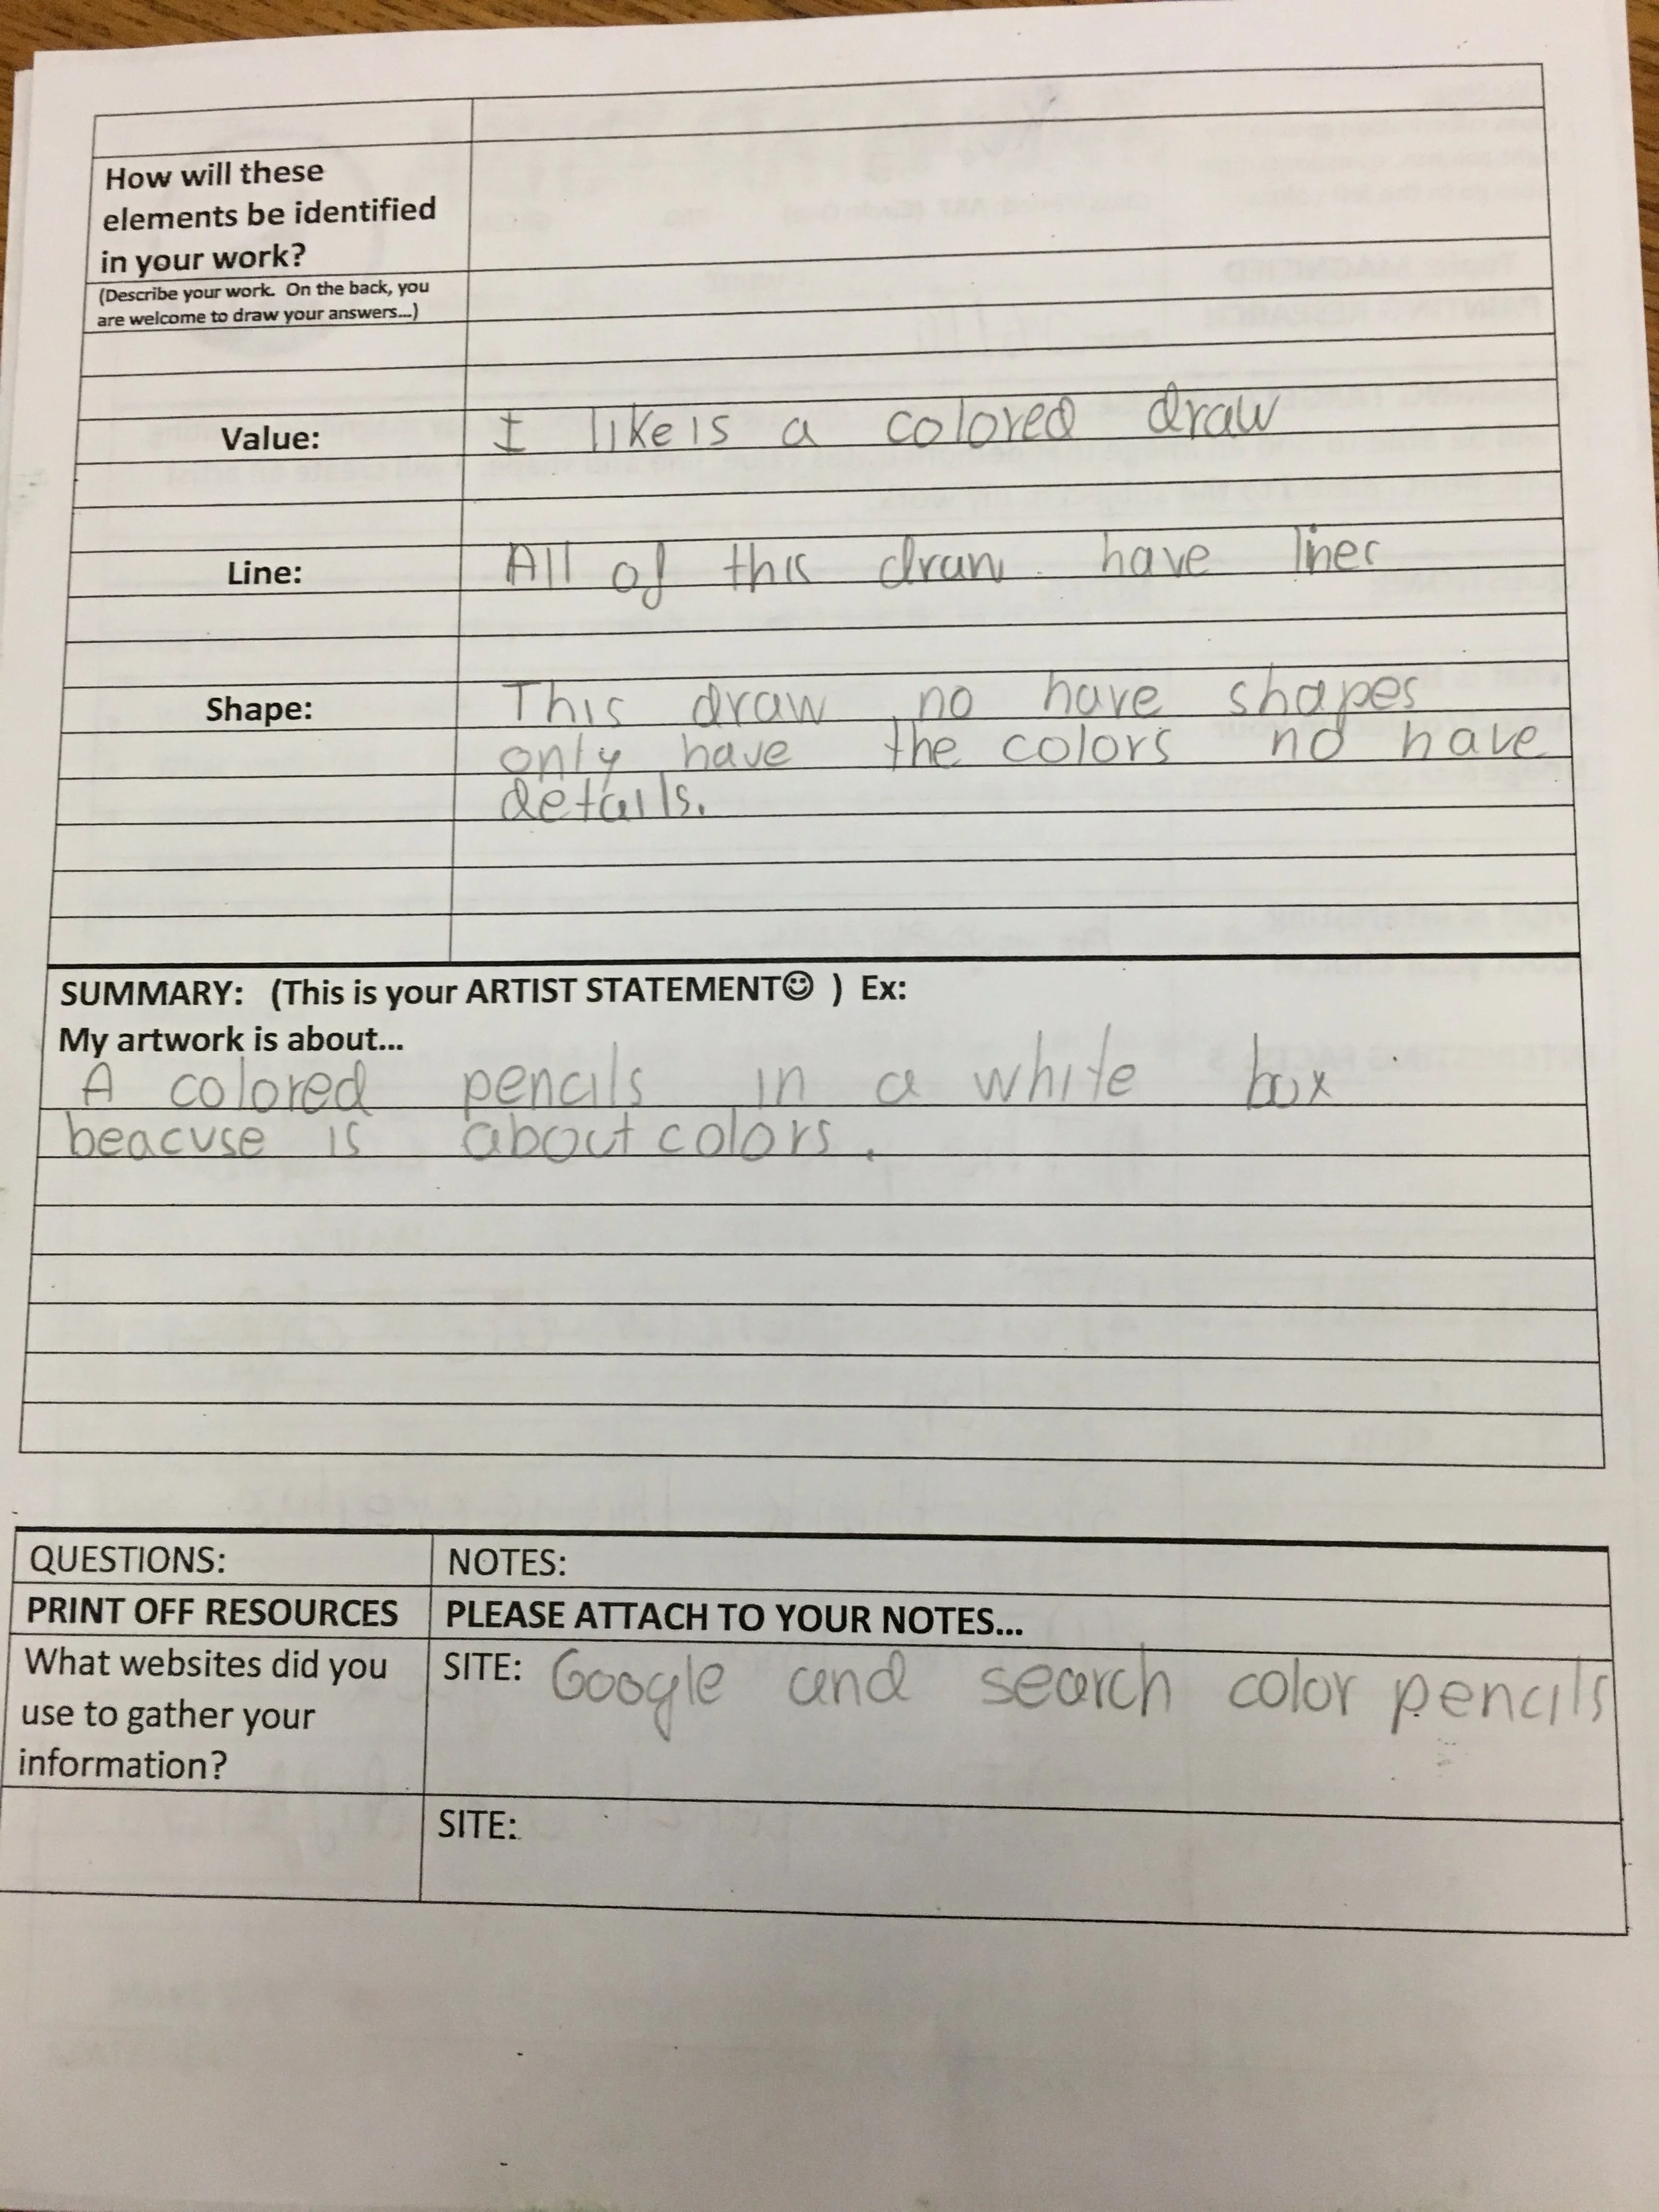 How will these
elements be identified
in your work?
(Describe your work. On the back, you
are welcome to draw your answers...)
Value: I like is a colored draw
Line: All of this draw have lines
Shape: This draw no have shapes
only have the colors no have
details.
SUMMARY: (This is your ARTIST STATEMENT☺ ) Ex:
My artwork is about...
A colored pencils in a white box
beacuse is about colors.
QUESTIONS: NOTES:
PRINT OFF RESOURCES PLEASE ATTACH TO YOUR NOTES...
What websites did you SITE: Google and search color pencils
use to gather your
information?
SITE: